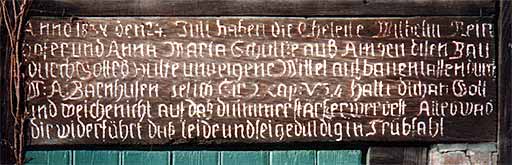 Anno 1834 den 24. Juli haben die Eheleute Wilhelm
und Anna Maria Schulte auß Ampen diesen Bau
durch Gottes Hülfe und eigene Mittel aufbauen lassen durch
M. A. Baenhusen Cap. V 3.4 halt dich an Gott
und weiche nicht auf das du immer starcker werdest Alles was
dir widerfährt das leide und sei geduldig in Trübsahl